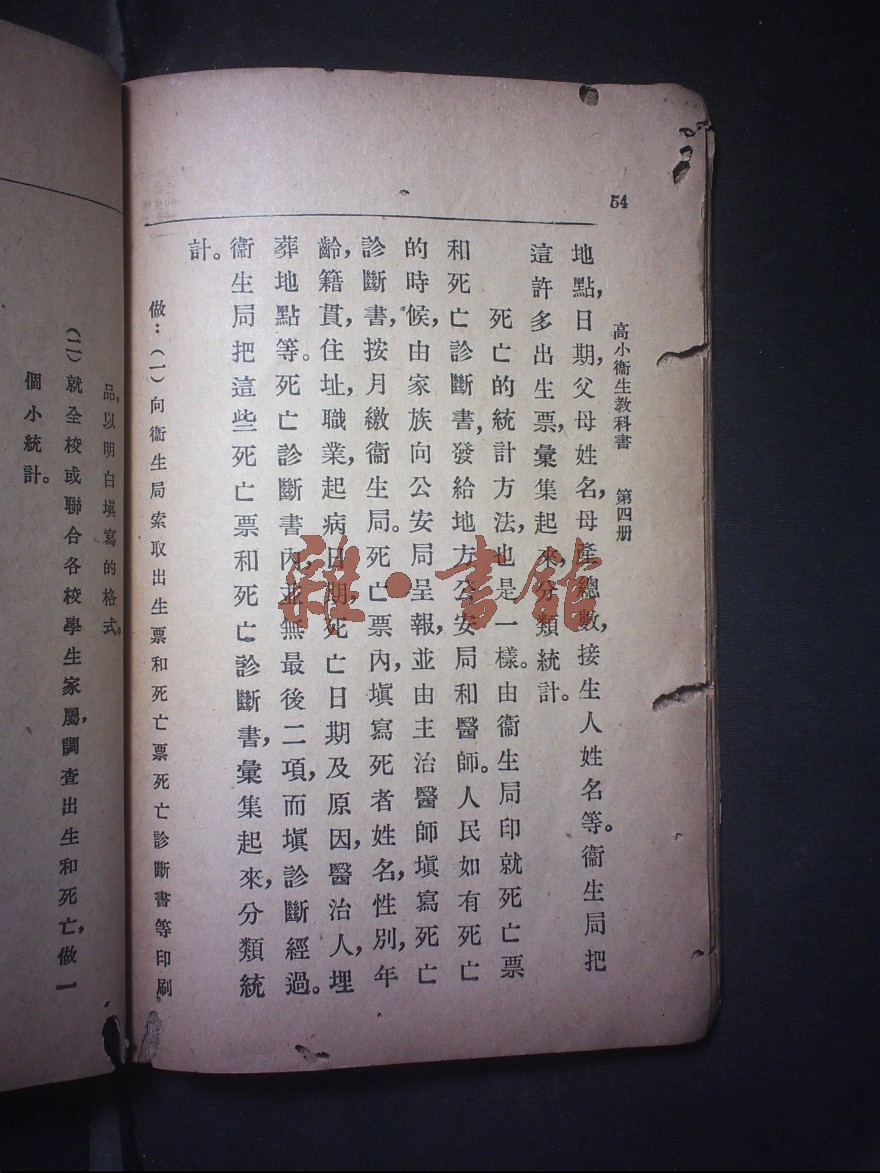 54
高小衞生教科書　第四册
地點，日期，父母姓名，母產總數，接生人姓名等。衞生局把
這許多出生票，彙集起來，分類統計。
死亡的統計方法，也是一樣。由衞生局印就死亡票
和死亡診斷書，發給地方公安局和醫師。人民如有死亡
的時候，由家族向公安局呈報，並由主治醫師塡寫死亡
診斷書，按月繳衞生局。死亡票內，塡寫死者姓名，性別，年
齡，籍貫，住址，職業，起病日期，死亡日期及原因，醫治人，埋
葬地點等。死亡診斷書內，並無最後二項，而塡診斷經過。
衞生局把這些死亡票和死亡診斷書，彙集起來，分類統
計。
做：（一）向衞生局索取出生票和死亡票死亡診斷書等印刷
品，以明白塡寫的格式。
（二）就全校或聯合各校學生家屬，調查出生和死亡，做一
個小統計。
雜·書館